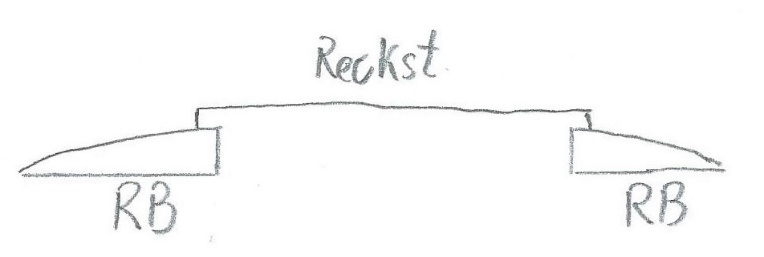 Reckst.
RB
RB